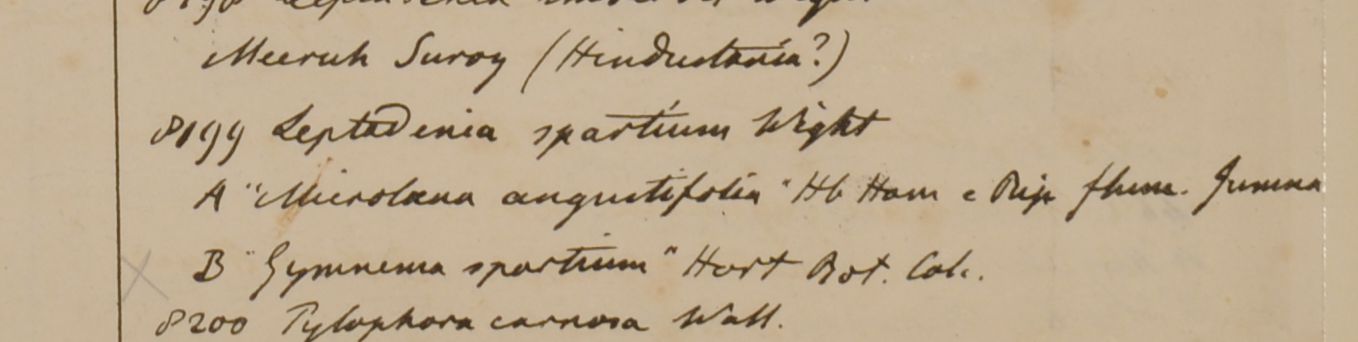 8198 Leptadenia Wight
Meeruh Suroy (Hindustania?)
8199 Leptadenia spartium Wight
A "Microlæna angustifolia" Hb Ham e Rip flum. Jumna
B "Gymnema spartium" Hort Bot. Calc.
8200 Tylophora carnosa Wall.